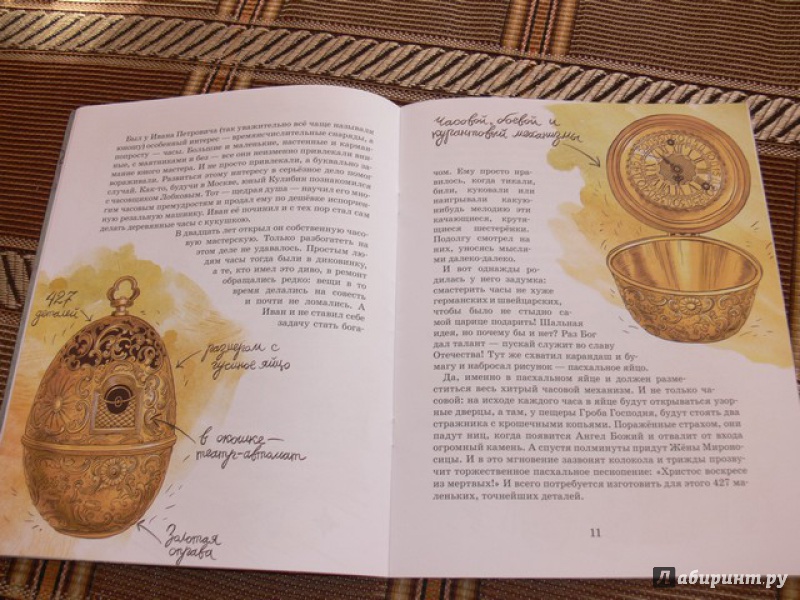 Был у Ивана Петровича (так уважительно всё чаще называли
юношу) особенный интерес — времяисчислительные снаряды, а
попросту — часы. Большие и маленькие, настенные и карман-
ные, с маятниками и без — все они неизменно привлекали вни-
мание юного мастера. И не просто привлекали, а буквально за-
вораживали. Развиться этому интересу в серьёзное дело помог
случай. Как-то, будучи в Москве, юный Кулибин познакомился
с часовщиком Лобковым. Тот — щедрая душа — научил его мно-
гим часовым премудростям и продал ему по дешёвке испорчен-
ную резальную машинку. Иван её починил и с тех пор стал сам
делать деревянные часы с кукушкою.
В двадцать лет открыл он собственную часо-
вую мастерскую. Только разбогатеть на
этом деле не удавалось. Простым лю-
дям часы тогда были в диковинку,
а те, кто имел это диво, в ремонт
обращались редко: вещи в то
время делались на совесть
и почти не ломались. А
Иван и не ставил себе
задачу стать бога-
427
деталей
размером с
гусиное яйцо
в окошке —
театр-автомат
Золотая
оправа
Часовой, боевой и
курантовый механизмы
чом. Ему просто нра-
вилось, когда тикали,
били, куковали или
наигрывали какую-
нибудь мелодию эти
качающиеся, крутя-
щиеся шестерёнки.
Подолгу смотрел на
них, уносясь мысля-
ми далеко-далеко.
И вот однажды ро-
дилась у него задумка:
смастерить часы не хуже
германских и швейцарских,
чтобы было не стыдно са-
мой царице подарить! Шальная
идея, но почему бы и нет? Раз Бог
дал талант — пускай служит во славу
Отечества! Тут же схватил карандаш и бу-
магу и набросал рисунок — пасхальное яйцо.
Да, именно в пасхальном яйце и должен разме-
ститься весь хитрый часовой механизм. И не только ча-
совой: на исходе каждого часа в яйце будут открываться узор-
ные дверцы, а там, у пещеры Гроба Господня, будут стоять два
стражника с крошечными копьями. Поражённые страхом, они
падут ниц, когда появится Ангел Божий и отвалит от входа
огромный камень. А спустя полминуты придут Жёны Мироно-
сицы. И в это мгновение зазвонят колокола и трижды прозву-
чит торжественное пасхальное песнопение: «Христос воскресе
из мертвых!» И всего потребуется изготовить для этого 427 ма-
леньких, точнейших деталей.
11
Лабиринт.ру